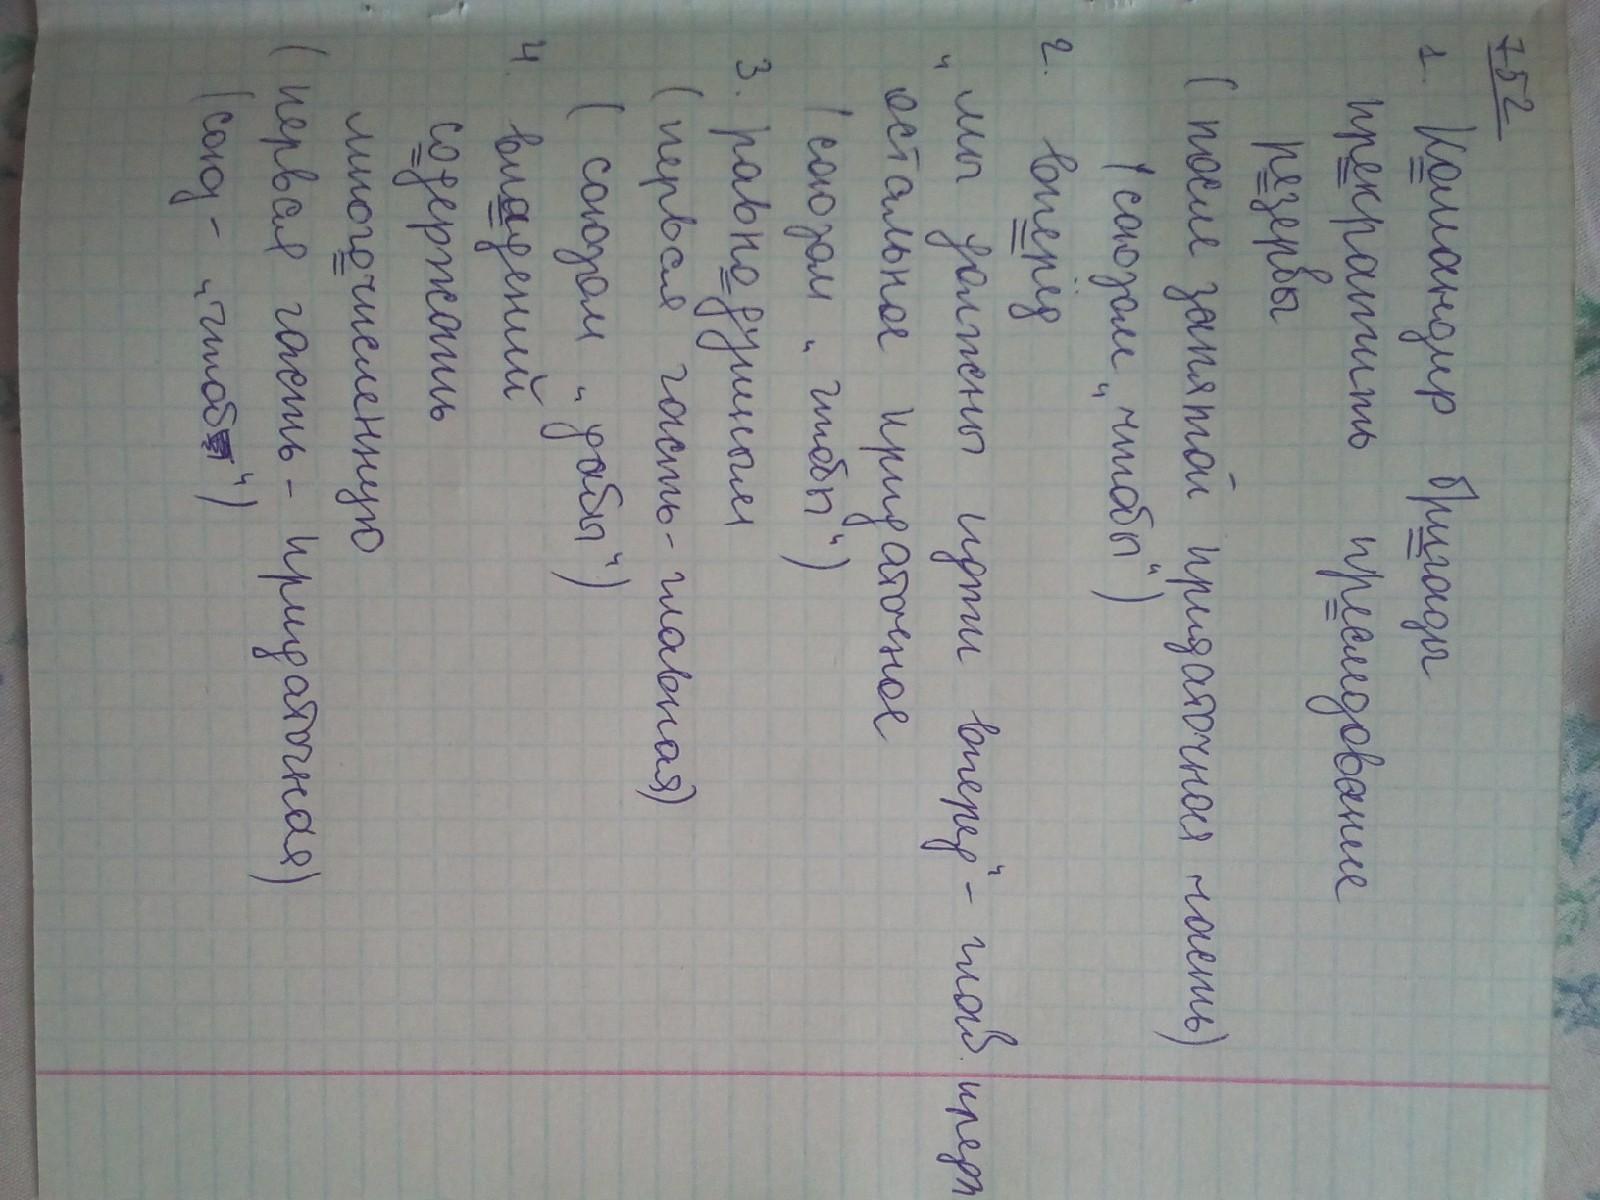 752
1. Командир бригады
прекратить преследование
резервы
(после запятой придаточная часть)
(союзом „чтобы“)
2. вперёд
„мы должны идти вперед“ - глав. пред
остальное придаточное
(союзом „чтобы“)
3. равнодушным
(первая часть - главная)
(союзом „дабы“)
4. владений
содержать
многочисленную
(первая часть - придаточная)
(союз - „чтоб“)